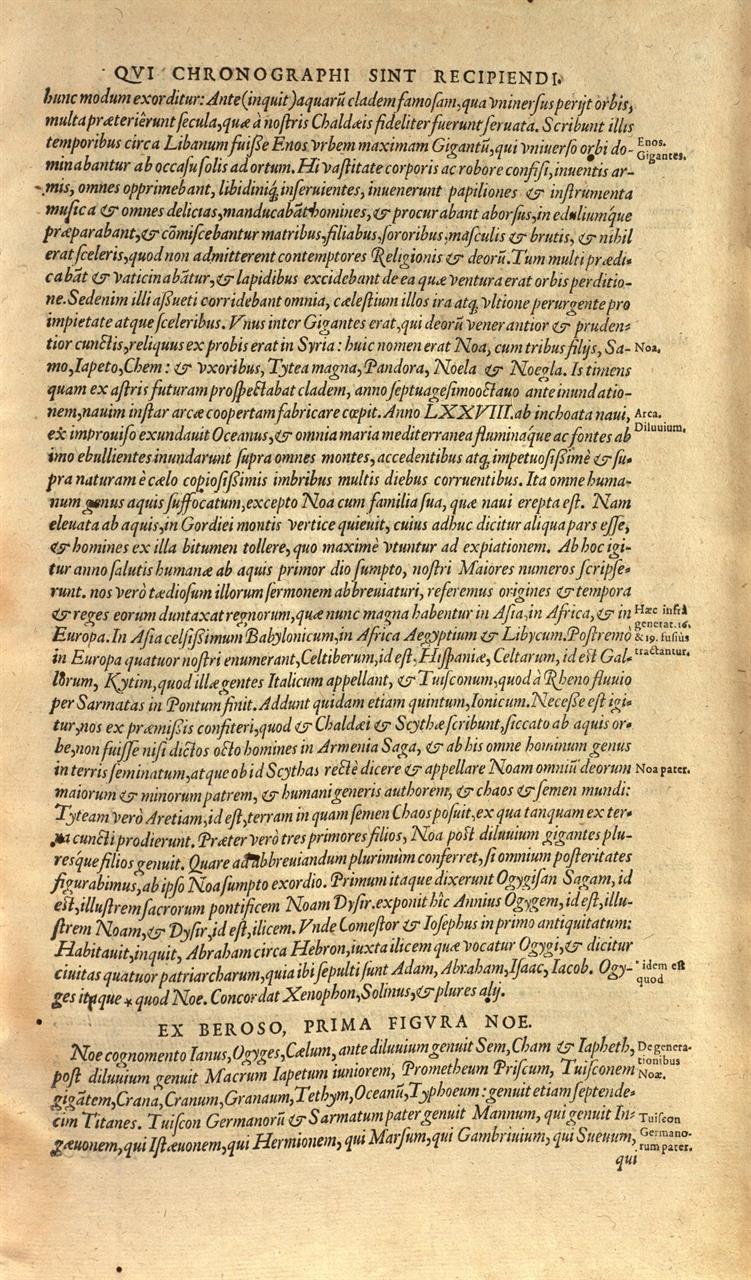 QVI CHRONOGRAPHI SINT RECIPIENDI.
hunc modum exorditur: Ante (inquit) aquarū cladem famosam, qua vniuersus perijt orbis,
multa præteriêrunt secula, quæ à nostris Chaldæis fideliter fuerunt seruata. Scribunt illis
temporibus circa Libanum fuisse Enos vrbem maximam Gigantū, qui vniuerso orbi do-
Enos.
Gigantes.
minabantur ab occasu solis ad ortum. Hi vastitate corporis ac robore confisi, inuentis ar-
mis, omnes opprimebant, libidiniq́; inseruientes, inuenerunt papiliones & instrumenta
musica & omnes delicias, manducabāt homines, & procurabant aborsus, in eduliumque
præparabant, & cōmiscebantur matribus, filiabus, sororibus, masculis & brutis, & nihil
erat sceleris, quod non admitterent contemptores Religionis & deorū. Tum multi prædi-
cabāt & vaticinabātur, & lapidibus excidebant de ea quæ ventura erat orbis perditio-
ne. Sed enim illi assueti corridebant omnia, cælestium illos ira atq; vltione perurgente pro
impietate atque sceleribus. Vnus inter Gigantes erat, qui deorū venerantior & pruden-
tior cunctis, reliquus ex probis erat in Syria: huic nomen erat Noa, cum tribus filijs, Sa-
Noa.
mo, Iapeto, Chem: & vxoribus, Tytea magna, Pandora, Noela & Noegla. Is timens
quam ex astris futuram prospectabat cladem, anno septuagesimooctauo ante inundatio-
nem, nauim instar arcæ coopertam fabricare cœpit. Anno LXXVIII. ab inchoata naui,
Arca.
Diluuium.
ex improuiso exundauit Oceanus, & omnia maria mediterranea fluminaq́ue ac fontes ab
imo ebullientes inundarunt supra omnes montes, accedentibus atq; impetuosissimè & su-
pra naturam è cælo copiosissimis imbribus multis diebus corruentibus. Ita omne huma-
num genus aquis suffocatum, excepto Noa cum familia sua, quæ naui erepta est. Nam
eleuata ab aquis, in Gordiei montis vertice quieuit, cuius adhuc dicitur aliqua pars esse,
& homines ex illa bitumen tollere, quo maximè vtuntur ad expiationem. Ab hoc igi-
tur anno salutis humanæ ab aquis primordio sumpto, nostri Maiores numeros scripse-
runt. nos verò tædiosum illorum sermonem abbreuiaturi, referemus origines & tempora
& reges eorum duntaxat regnorum, quæ nunc magna habentur in Asia, in Africa, & in
Hæc infrà
generat. 16.
& 19. fusius
tractantur.
Europa. In Asia celsissimum Babylonicum, in Africa Aegyptium & Libycum. Postremò
in Europa quatuor nostri enumerant, Celtiberum, id est, Hispaniæ, Celtarum, id est Gal-
lorum, Kytim, quod illæ gentes Italicum appellant, & Tuisconum, quod à Rheno fluuio
per Sarmatas in Pontum finit. Addunt quidam etiam quintum, Ionicum. Necesse est igi-
tur, nos ex præmissis confiteri, quod & Chaldæi & Scythæ scribunt, siccato ab aquis or-
be, non fuisse nisi dictos octo homines in Armenia Saga, & ab his omne hominum genus
in terris seminatum, atque ob id Scythas rectè dicere & appellare Noam omniū deorum
Noa pater.
maiorum & minorum patrem, & humani generis authorem, & chaos & semen mundi:
Tyteam verò Aretiam, id est, terram in quam semen Chaos posuit, ex qua tanquam ex ter-
ra cuncti prodierunt. Præter verò tres primores filios, Noa post diluuium gigantes plu-
resque filios genuit. Quare ad abbreuiandum plurimùm conferret, si omnium posteritates
figurabimus, ab ipso Noa sumpto exordio. Primum itaque dixerunt Ogygisan Sagam, id
est, illustrem sacrorum pontificem Noam Dysir. exponit hîc Annius Ogygem, id est, illu-
strem Noam, & Dysir, id est, ilicem. Vnde Comestor & Iosephus in primo antiquitatum:
Habitauit, inquit, Abraham circa Hebron, iuxta ilicem quæ vocatur Ogygi, & dicitur
ciuitas quatuor patriarcharum, quia ibi sepulti sunt Adam, Abraham, Isaac, Iacob. Ogy-
* idem est
quod
ges itaque * quod Noe. Concordat Xenophon, Solinus, & plures alij.
EX BEROSO, PRIMA FIGVRA NOE.
Noe cognomento Ianus, Ogyges, Cælum, ante diluuium genuit Sem, Cham & Iapheth,
De genera-
tionibus
Noæ.
post diluuium genuit Macrum Iapetum iuniorem, Prometheum Priscum, Tuisconem
gigātem, Crana, Cranum, Granaum, Tethym, Oceanū, Typhoeum: genuit etiam septende-
cim Titanes. Tuiscon Germanorū & Sarmatum pater genuit Mannum, qui genuit In-
Tuiscon
Germano-
rum pater.
gæuonem, qui Istæuonem, qui Hermionem, qui Marsum, qui Gambriuium, qui Sueuum,
qui